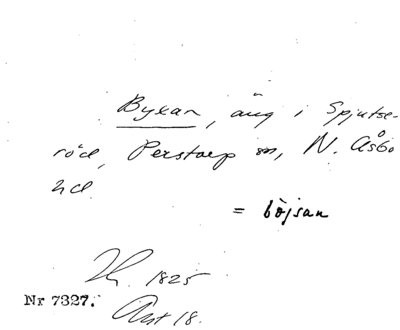 Byxan, äng i Spjutse-
röd, Perstorp sn, N. Åsbo
hd
= bòjsan
1825
Nr 7327. Akt 18.